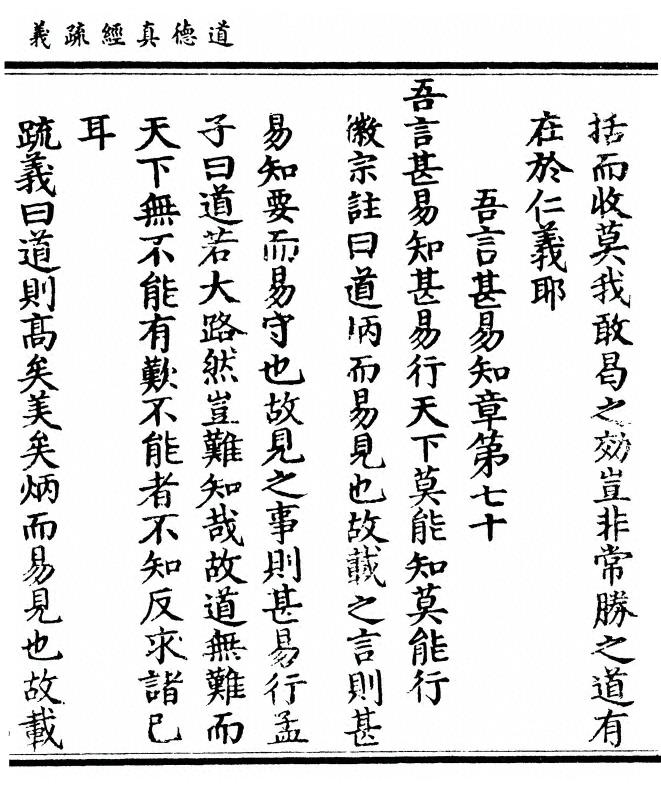 道德真經疏義
括而收莫我敢曷之効豈非常勝之道有
在於仁義耶
吾言甚易知章第七十
吾言甚易知甚易行天下莫能知莫能行
徽宗註曰道炳而易見也故載之言則甚
易知要而易守也故見之事則甚易行孟
子曰道若大路然豈難知哉故道無難而
天下無不能有歎不能者不知反求諸已
耳
疏義曰道則高矣美矣炳而易見也故載